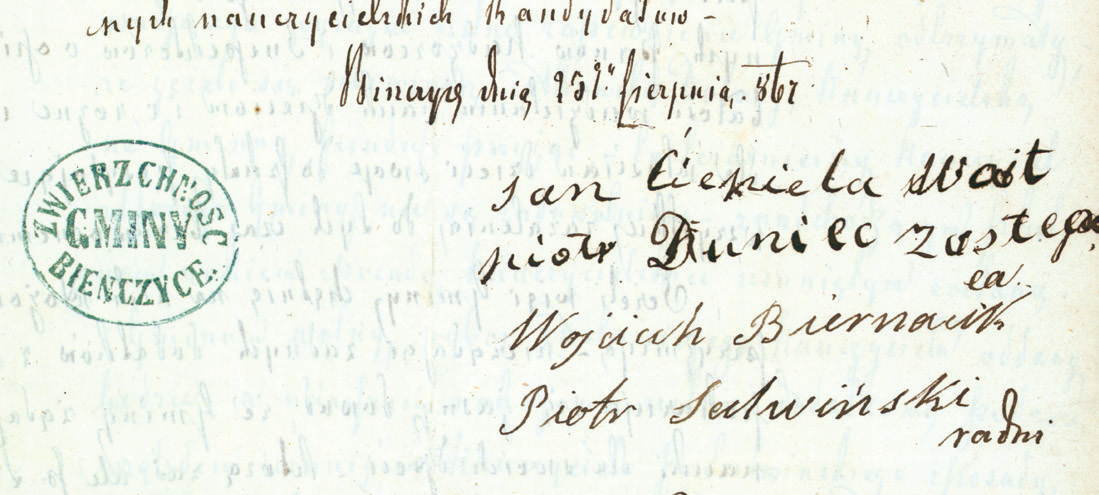 nych nauczycielskich Kandydatów –
Binczyce dnia 25go Sierpnia 867
ZWIERZCHNOŚĆ
GMINY
BIEŃCZYCE.
jan Ciepiela Wojt
piotr Kuniec zastęp
ca
Wojciech Biernacik
Piotr Salwiński
radni